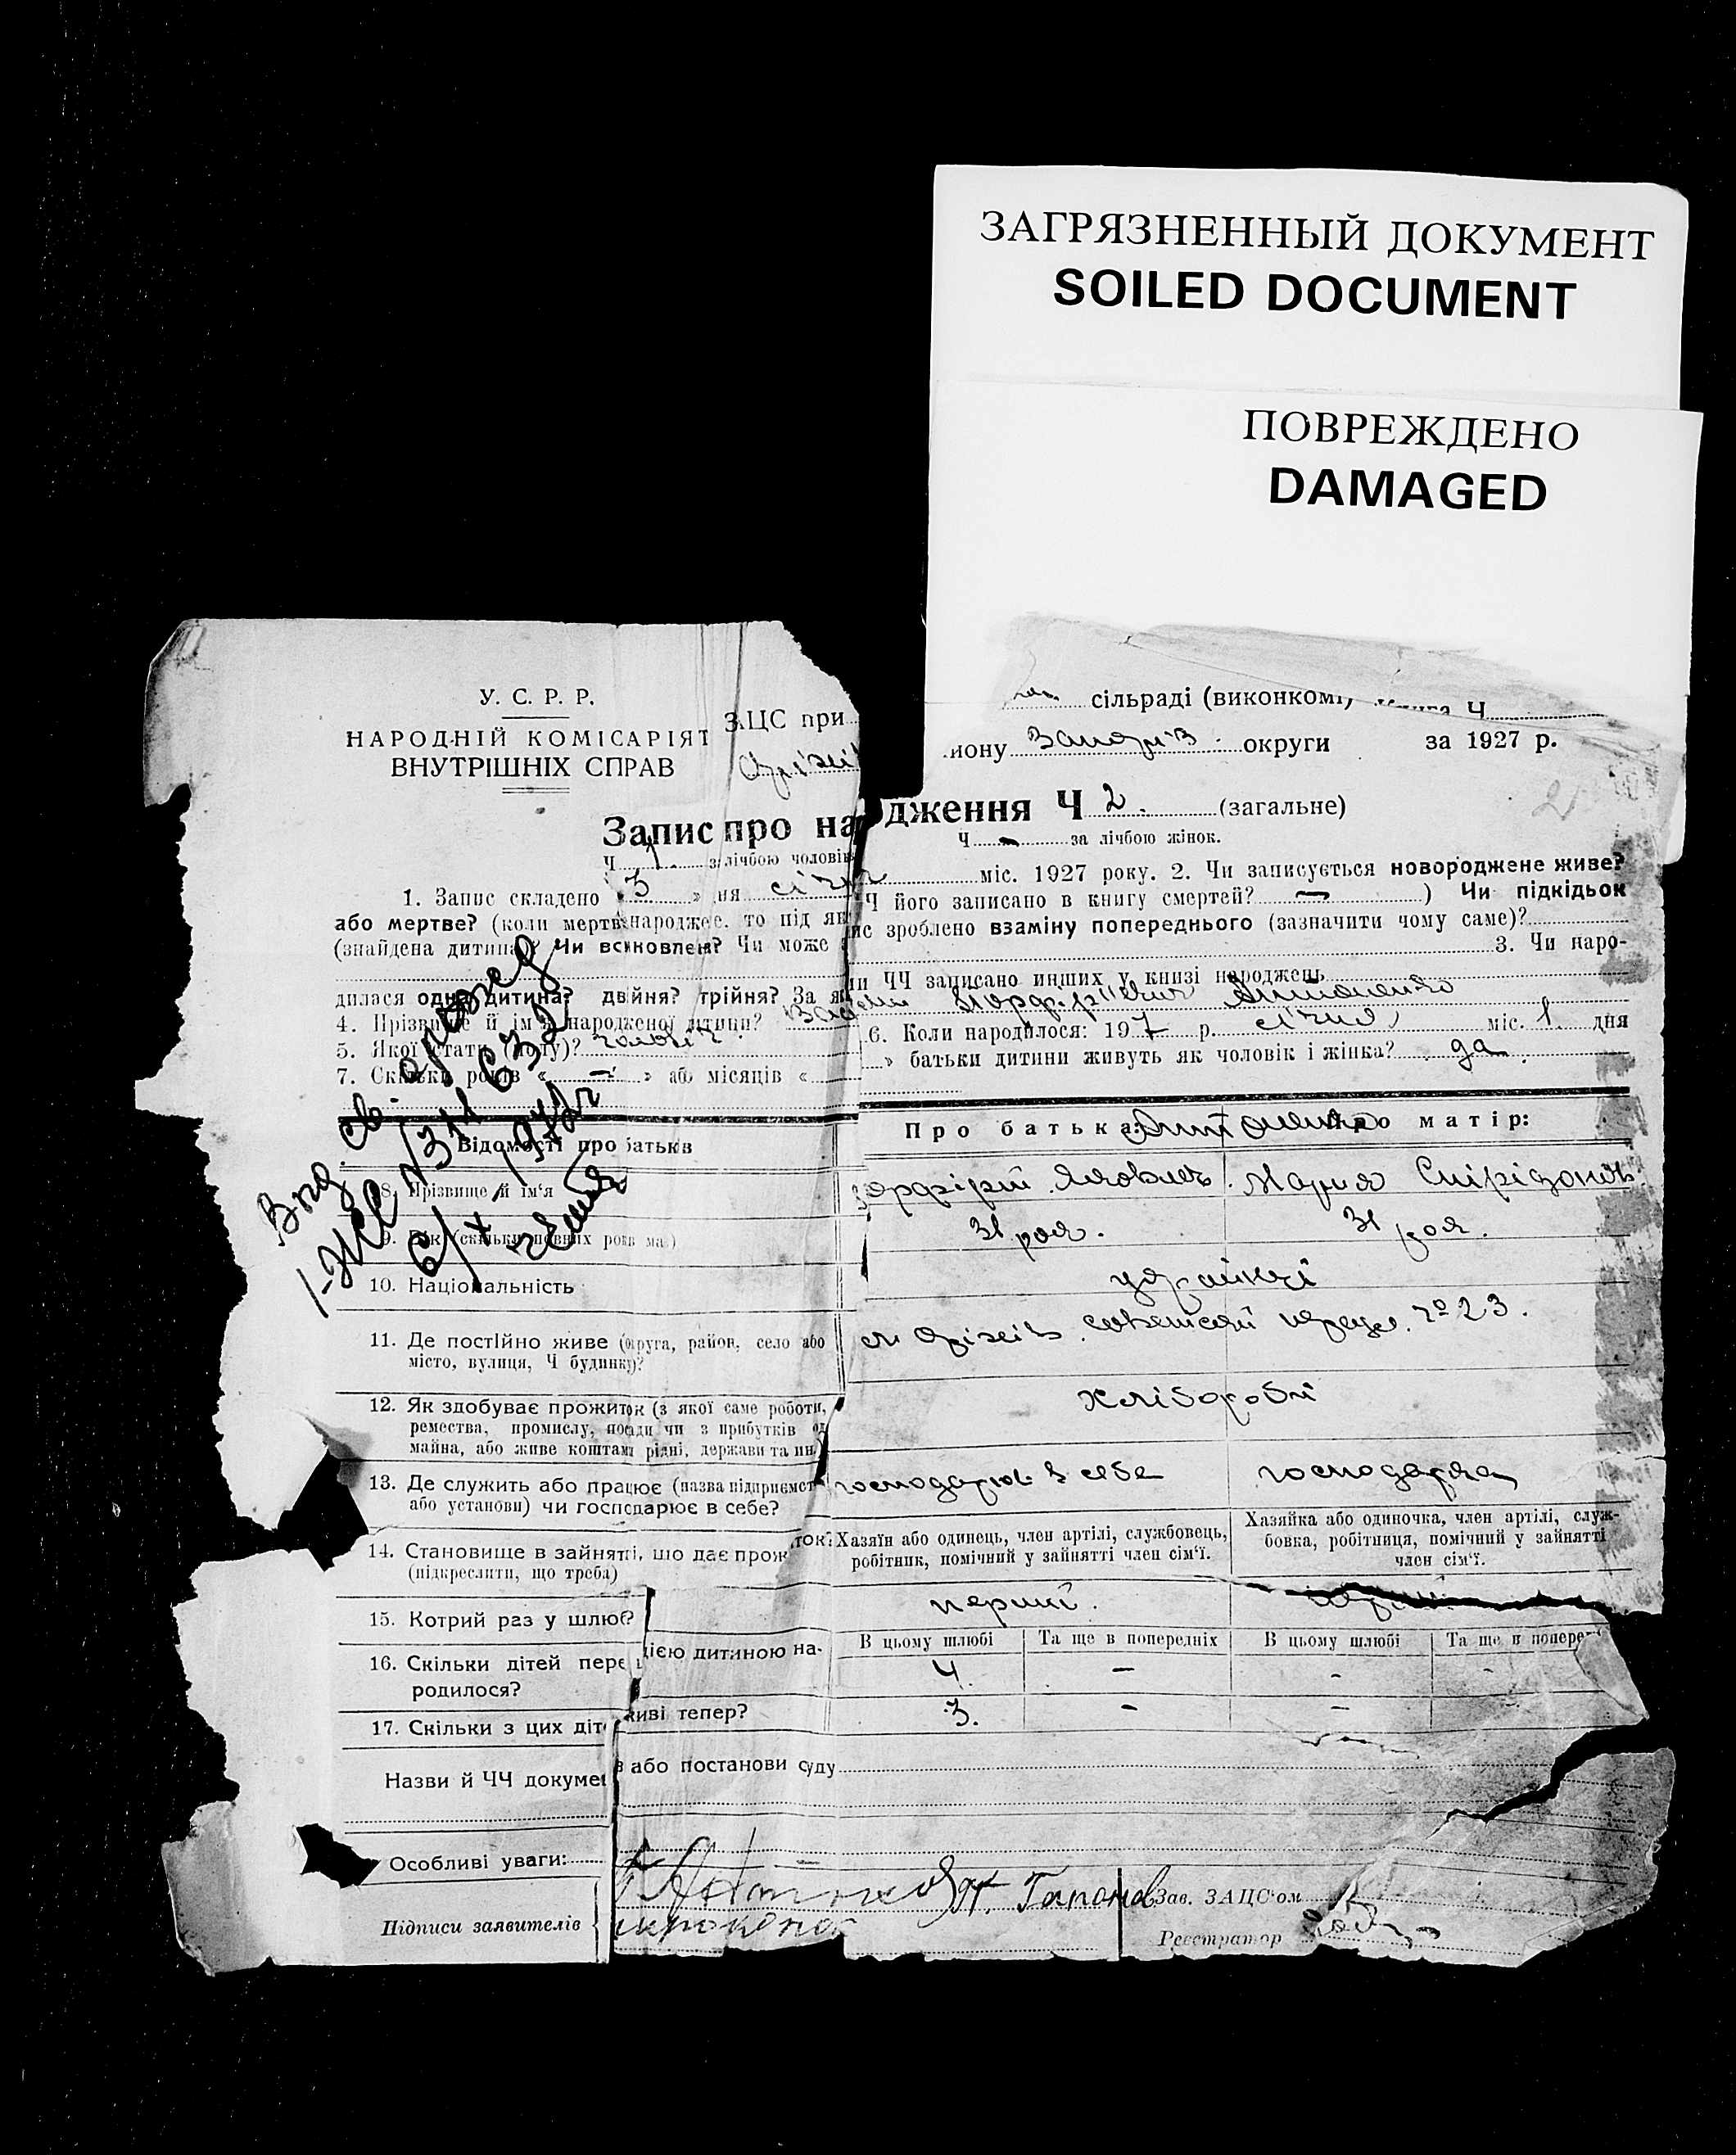 ЗАГРЯЗНЕННЫЙ ДОКУМЕНТ
SOILED DOCUMENT
ПОВРЕЖДЕНО
DAMAGED
У. С. Р. Р.
НАРОДНІЙ КОМІСАРІЯТ
ВНУТРІШНІХ СПРАВ
ЗАЦС при
сільраді (виконкомі) Книга Ч.
йону округи за 1927 р.
Запис про народження Ч 2. (загальне)
Ч 1. за лічбою чоловік
Ч — за лічбою жінок.
1. Запис складено « 3 » дня січня міс. 1927 року. 2. Чи записується новороджене живе?
або мертве? (коли мертвенароджене, то під як Ч його записано в книгу смертей? — ) Чи підкідьок
(знайдена дитина)? Чи встановлен? Чи може ис зроблено взаміну попереднього (зазначити чому саме)?
3. Чи наро-
дилася одна дитина? двійня? трійня? За як ми ЧЧ записано инших у книзі народжень
4. Прізвище й ім'я народженої дитини? Антоненко
5. Якої статі (полу)? чоловіч. 6. Коли народилося: 1927 р. січня міс. 1 дня
7. Скільки років « — » або місяців « » батьки дитини живуть як чоловік і жінка? да.
Вид. св. о рожд
1-ЖС №
Відомості про батьків
Про батька: Антоненко Про матір:
8. Прізвище й ім'я орфірій Яковлев. Мария Спірідонів
9. Вік (скільки повних років має) 31 рок. 31 рок.
10. Національність українці
11. Де постійно живе (округа, район, село або
місто, вулиця, Ч будинку)?
м Оріхів. № 23.
12. Як здобуває прожиток (з якої саме роботи,
ремества, промислу, посади чи з прибутків од
майна, або живе коштами рідні, держави та ин.)
хлібороби
13. Де служить або працює (назва підприємст
або установи) чи господарює в себе?
господарює в себе господарка
14. Становище в зайнятті, що дає прожиток?
(підкреслити, що треба)
Хазяїн або одинець, член артілі, службовець,
робітник, помічний у зайнятті член сім'ї.
Хазяйка або одиночка, член артілі, служ-
бовка, робітниця, помічний у зайнятті
член сім'ї.
15. Котрий раз у шлюб? перший.
16. Скільки дітей пере цією дитиною на-
родилося?
В цьому шлюбі Та ще в попередніх В цьому шлюбі Та ще в попере
4 — - -
17. Скільки з цих діте живі тепер? 3. — —
Назви й ЧЧ докумен в або постанови суду
Особливі уваги: —
Підписи заявителів
Зав. ЗАЦС'ом
Реєстратор